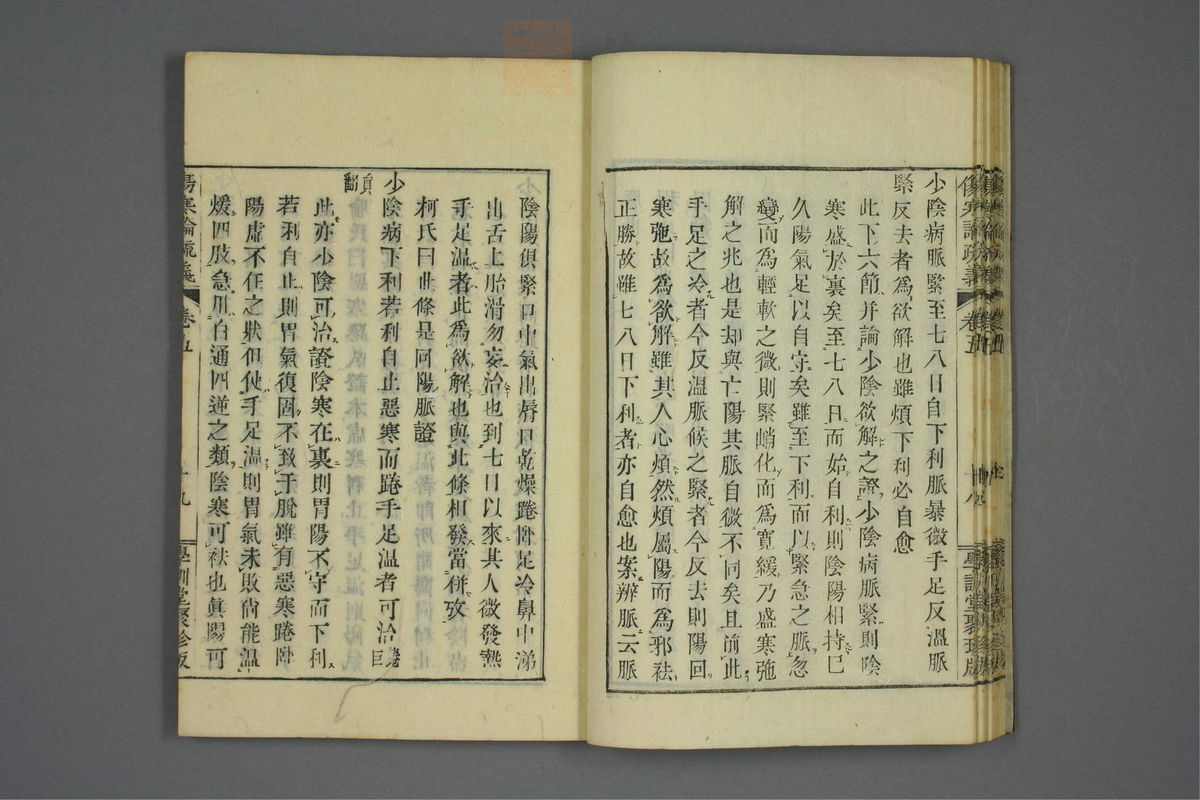 少陰病脈緊至七八日自下利脈暴微手足反溫脈
緊反去者爲欲解也雖煩下利必自愈
此下六節并論少陰欲解之證少陰病脈緊則陰
寒盛於裏矣至七八日而始自利則陰陽相持已
久陽氣足以自守矣雖至下利而以緊急之脈忽
變而爲輕軟之微則緊峭化而爲寬緩乃盛寒弛
解之兆也是却與亡陽其脈自微不同矣且前此
手足之冷者今反溫脈候之緊者今反去則陽回
寒弛故爲欲解雖其人心煩然煩屬陽而爲邪祛
正勝故雖七八日下利者亦自愈也案辨脈云脈
傷寒論疏義
卷五
十八
學訓堂聚珍版
陰陽俱緊口中氣出唇口乾燥踡臥足冷鼻中涕
出舌上胎滑勿妄治也到七日以來其人微發熱
手足溫者此爲欲解也與此條相發當併攷
柯氏曰此條是回陽脈證
少陰病下利若利自止惡寒而踡手足溫者可治踡巨
負翻
此亦少陰可治證陰寒在裏則胃陽不守而下利
若利自止則胃氣復固不致于脫雖有惡寒踡臥
陽虛不任之狀但使手足溫則胃氣未敗尙能溫
煖四肢急用白通四逆之類陰寒可祛也眞陽可
傷寒論疏義
卷五
十九
學訓堂聚珍版